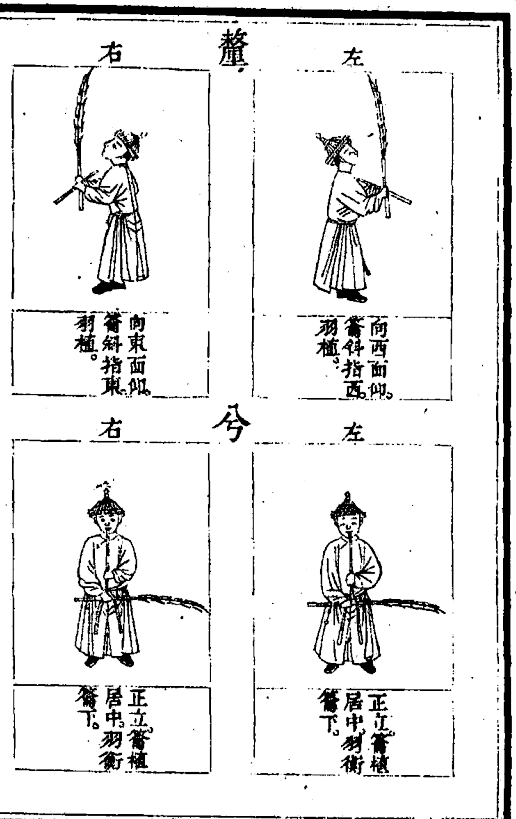 釐
左
向西面仰。
籥斜指西。
羽植。
右
向東面仰。
籥斜指東。
羽植。
兮
左
正立。籥植
居中。羽衡
籥下。
右
正立。籥植
居中。羽衡
籥下。